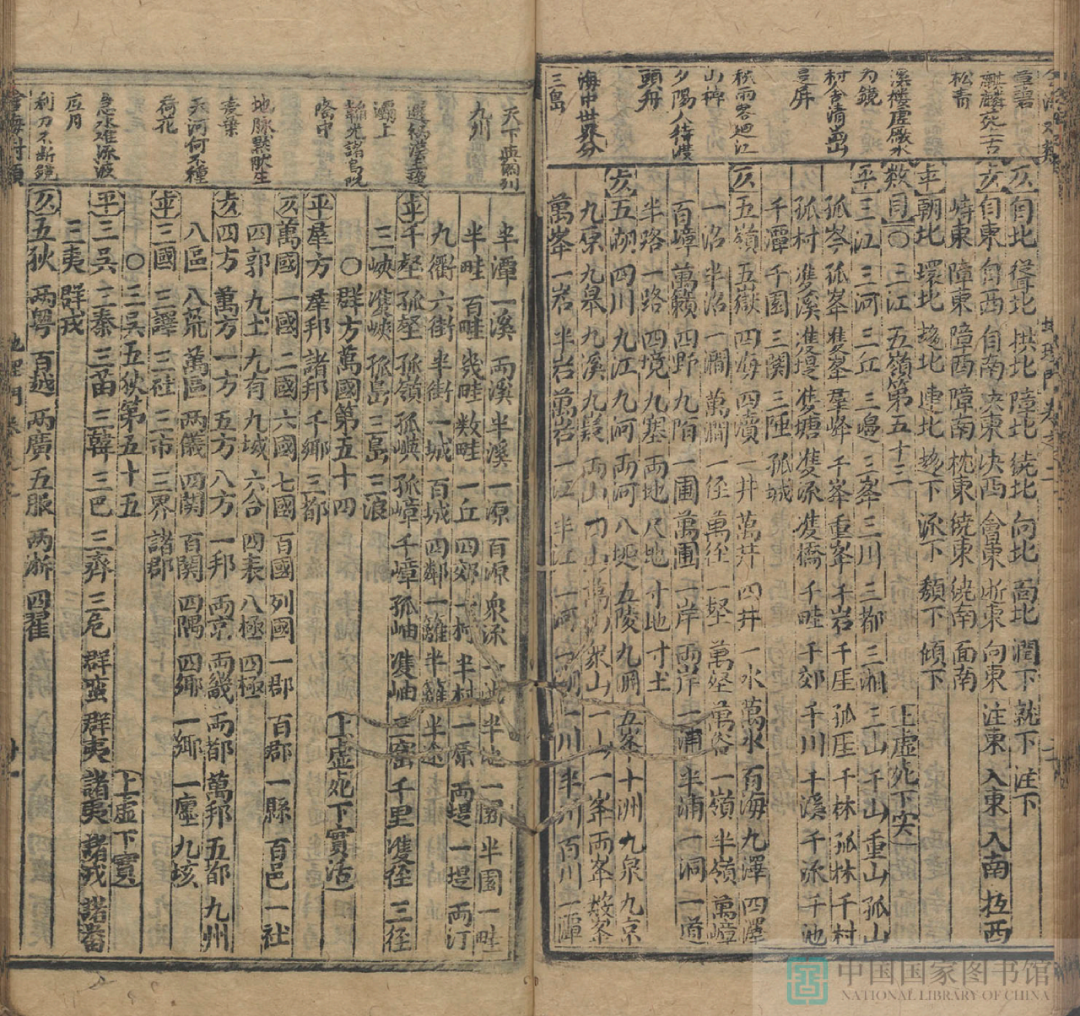 仄自北 從北 拱北 障北 繞北 向北 面北 潤下 就下 注下
仄自東 自西 自南 決東 決西 會東 浙東 向東 注東 入東 入南 拉西
峙東 障東 障西 障南 枕東 繞東 繞南 面南
平朝北 環北 趨北 連北 趨下 派下 頹下 傾下
數目〇三江五嶺第五十三 上虛死下實
平三江 三河 三丘 三邊 三峯 三川 三都 三湘 三山 千山 重山 孤山
孤岑 孤峯 隻峯 羣峰 千峯 重峯 千岩 千厓 孤厓 千林 孤林 千村
孤村 隻溪 隻堤 隻塘 隻派 隻橋 千畦 千郊 千川 千溪 千派 千池
千潭 千園 三關 三陲 孤城
仄五嶺 五嶽 四海 四瀆 一井 萬井 四井 一水 萬水 百海 九澤 四澤
一沼 半沼 一澗 萬澗 一徑 萬徑 一壑 萬壑 萬谷 一嶺 半嶺 萬嶂
百嶂 萬籟 四野 九陌 一圃 萬圃 一岸 兩岸 一浦 半浦 一洞 一道
半路 一路 四境 九塞 兩地 尺地 寸地 寸土
仄五湖 四川 九江 九河 兩河 八埏 五陵 九淵 五峯 十洲 九泉 九京
九原 九皋 九溪 九嶷 兩山 衆山 一山 一峯 兩峯 數峯
萬峯 一岩 半岩 萬岩 一江 半江 一河 一湖 一川 半川 百川 一潭
半潭 一溪 兩溪 半溪 一源 百源 衆派 半園 一畦
半畦 百畦 幾畦 數畦 一丘 四郊 一村 半村 一原 兩堤 一堤 兩汀
九衢 六街 半街 一城 百城 四鄰 一籬 半籬 半途
平千壑 孤壑 孤嶺 孤嶼 孤嶂 千嶂 孤岫 隻岫 三窰 千里 隻徑 三徑
三峽 隻峽 孤島 三島 三浪
〇群方萬國第五十四 上虛死下實活
平羣方 羣邦 諸邦 千鄉 三都
仄萬國 一國 二國 六國 七國 百國 列國 一郡 百郡 一縣 百邑 一社
四郭 九土 九有 九域 六合 四表 八極 四極
仄四方 萬方 一方 五方 八方 一邦 兩京 兩畿 兩都 萬邦 五都 九州
八區 八荒 萬區 兩儀 四關 百關 四隅 四鄉 一鄉 一廛 九垓
平三國 三譯 三社 三市 三界 諸郡
〇三吳五狄第五十五 上虛下實
平三吳 三秦 三苗 三韓 三巴 三齊 三危 群蠻 群夷 諸夷 諸戎 諸番
三夷 群戎
仄五狄 兩粤 百越 兩廣 五服 兩浙 四翟
麒麟死一古
松青
溪樓虛敞水
為鏡
村舍清幽山
為屏
秋雨客迴江
山碑
夕陽人待渡
頭舟
海中世界分
三島
天下輿圖列
九州
灞上
隆中
地脉默默生
麥葉
天河何不種
荷花
急水難流波
底月
利刀不斷鏡
地理門